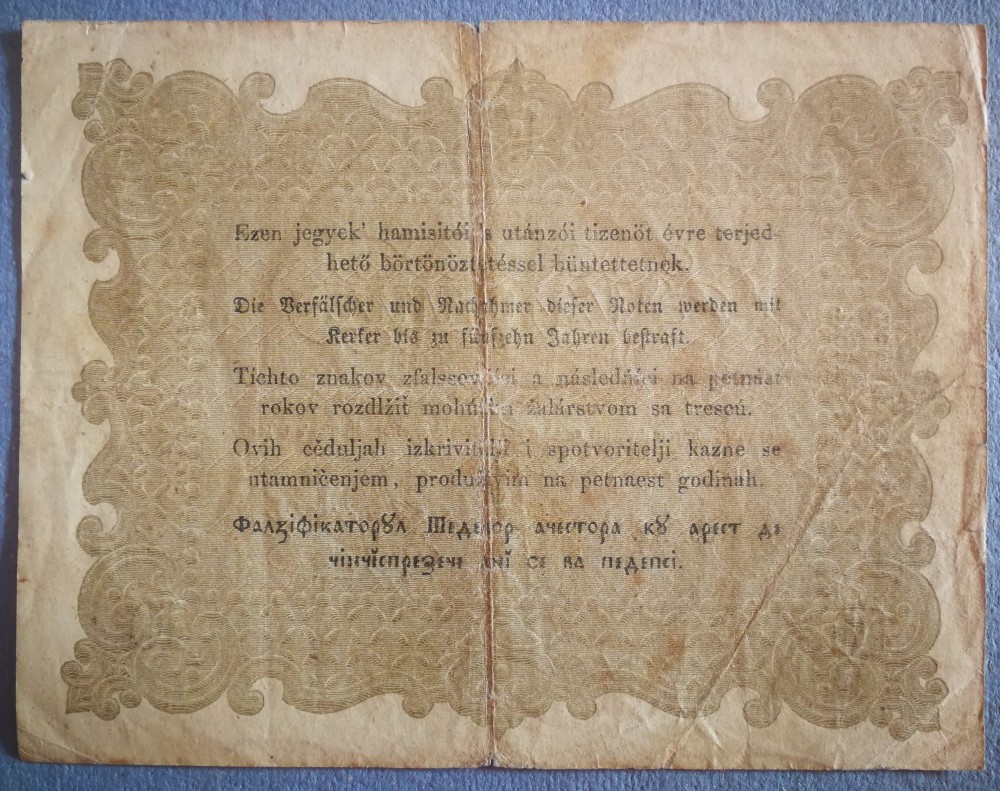 Ezen jegyek' hamisitói 's utánzói tizenöt évre terjed-
hető börtönöztetéssel büntettetnek.
Die Verfälscher und Nachahmer dieser Noten werden mit
Kerker bis zu fünfzehn Jahren bestraft.
Tichto znakov a následňíci na petnást
rokov rozdlžiť žalárstvom sa trescú.
Ovih cěduljah izkrivitelji i spotvoritelji kazne se
utamničenjem, produživim na petnaest godinah.
Фалзіфікаторꙋл Шеделор ачестора кꙋ арест де
чінчĭспрезече анĭ се ва педепсі.